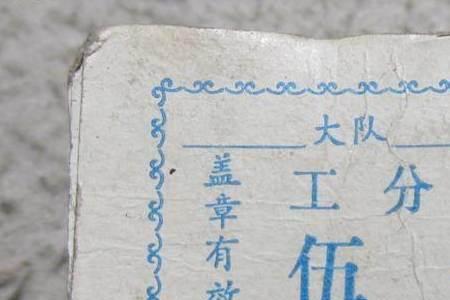 大队
工分
伍
盖章有效